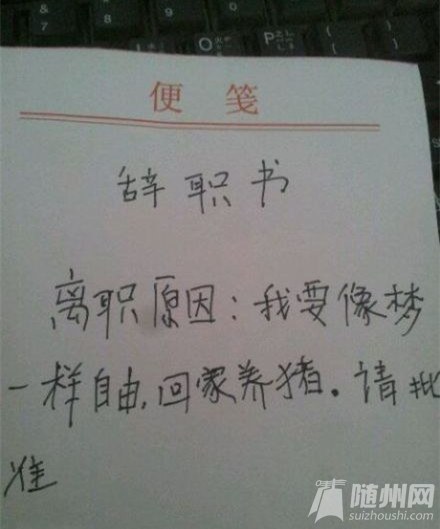 & 7
* 8
O
P
便笺
辞职书
离职原因：我要像梦
一样自由，回家养猪。请批
准
随州网
suizhoushi.com